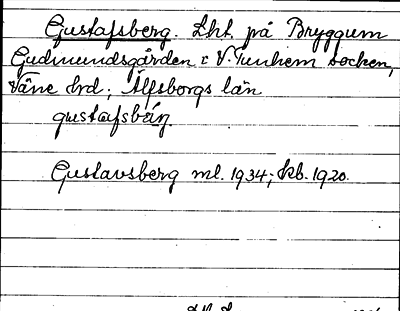 Gustafsberg. Lht. på Bryggum
Gudmundsgården i V. Tunhem socken,
Väne hrd; Älfsborgs län
gustafsbärj
Gustavsberg ml. 1934; kb. 1920.